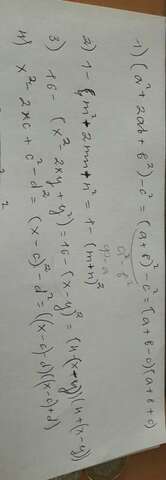 1) (a² + 2ab + b²) - c² = (a + b)² - c² = (a + b - c)(a + b + c)
2) 1 - (m² + 2mn + n²) = 1 - (m + n)²
3) 16 - (x² - 2xy + y²) = 16 - (x - y)² = (4 - (x - y))(4 + (x - y))
4) x² - 2xc + c² - d² = (x - c)² - d² = ((x - c) - d)((x - c) + d)